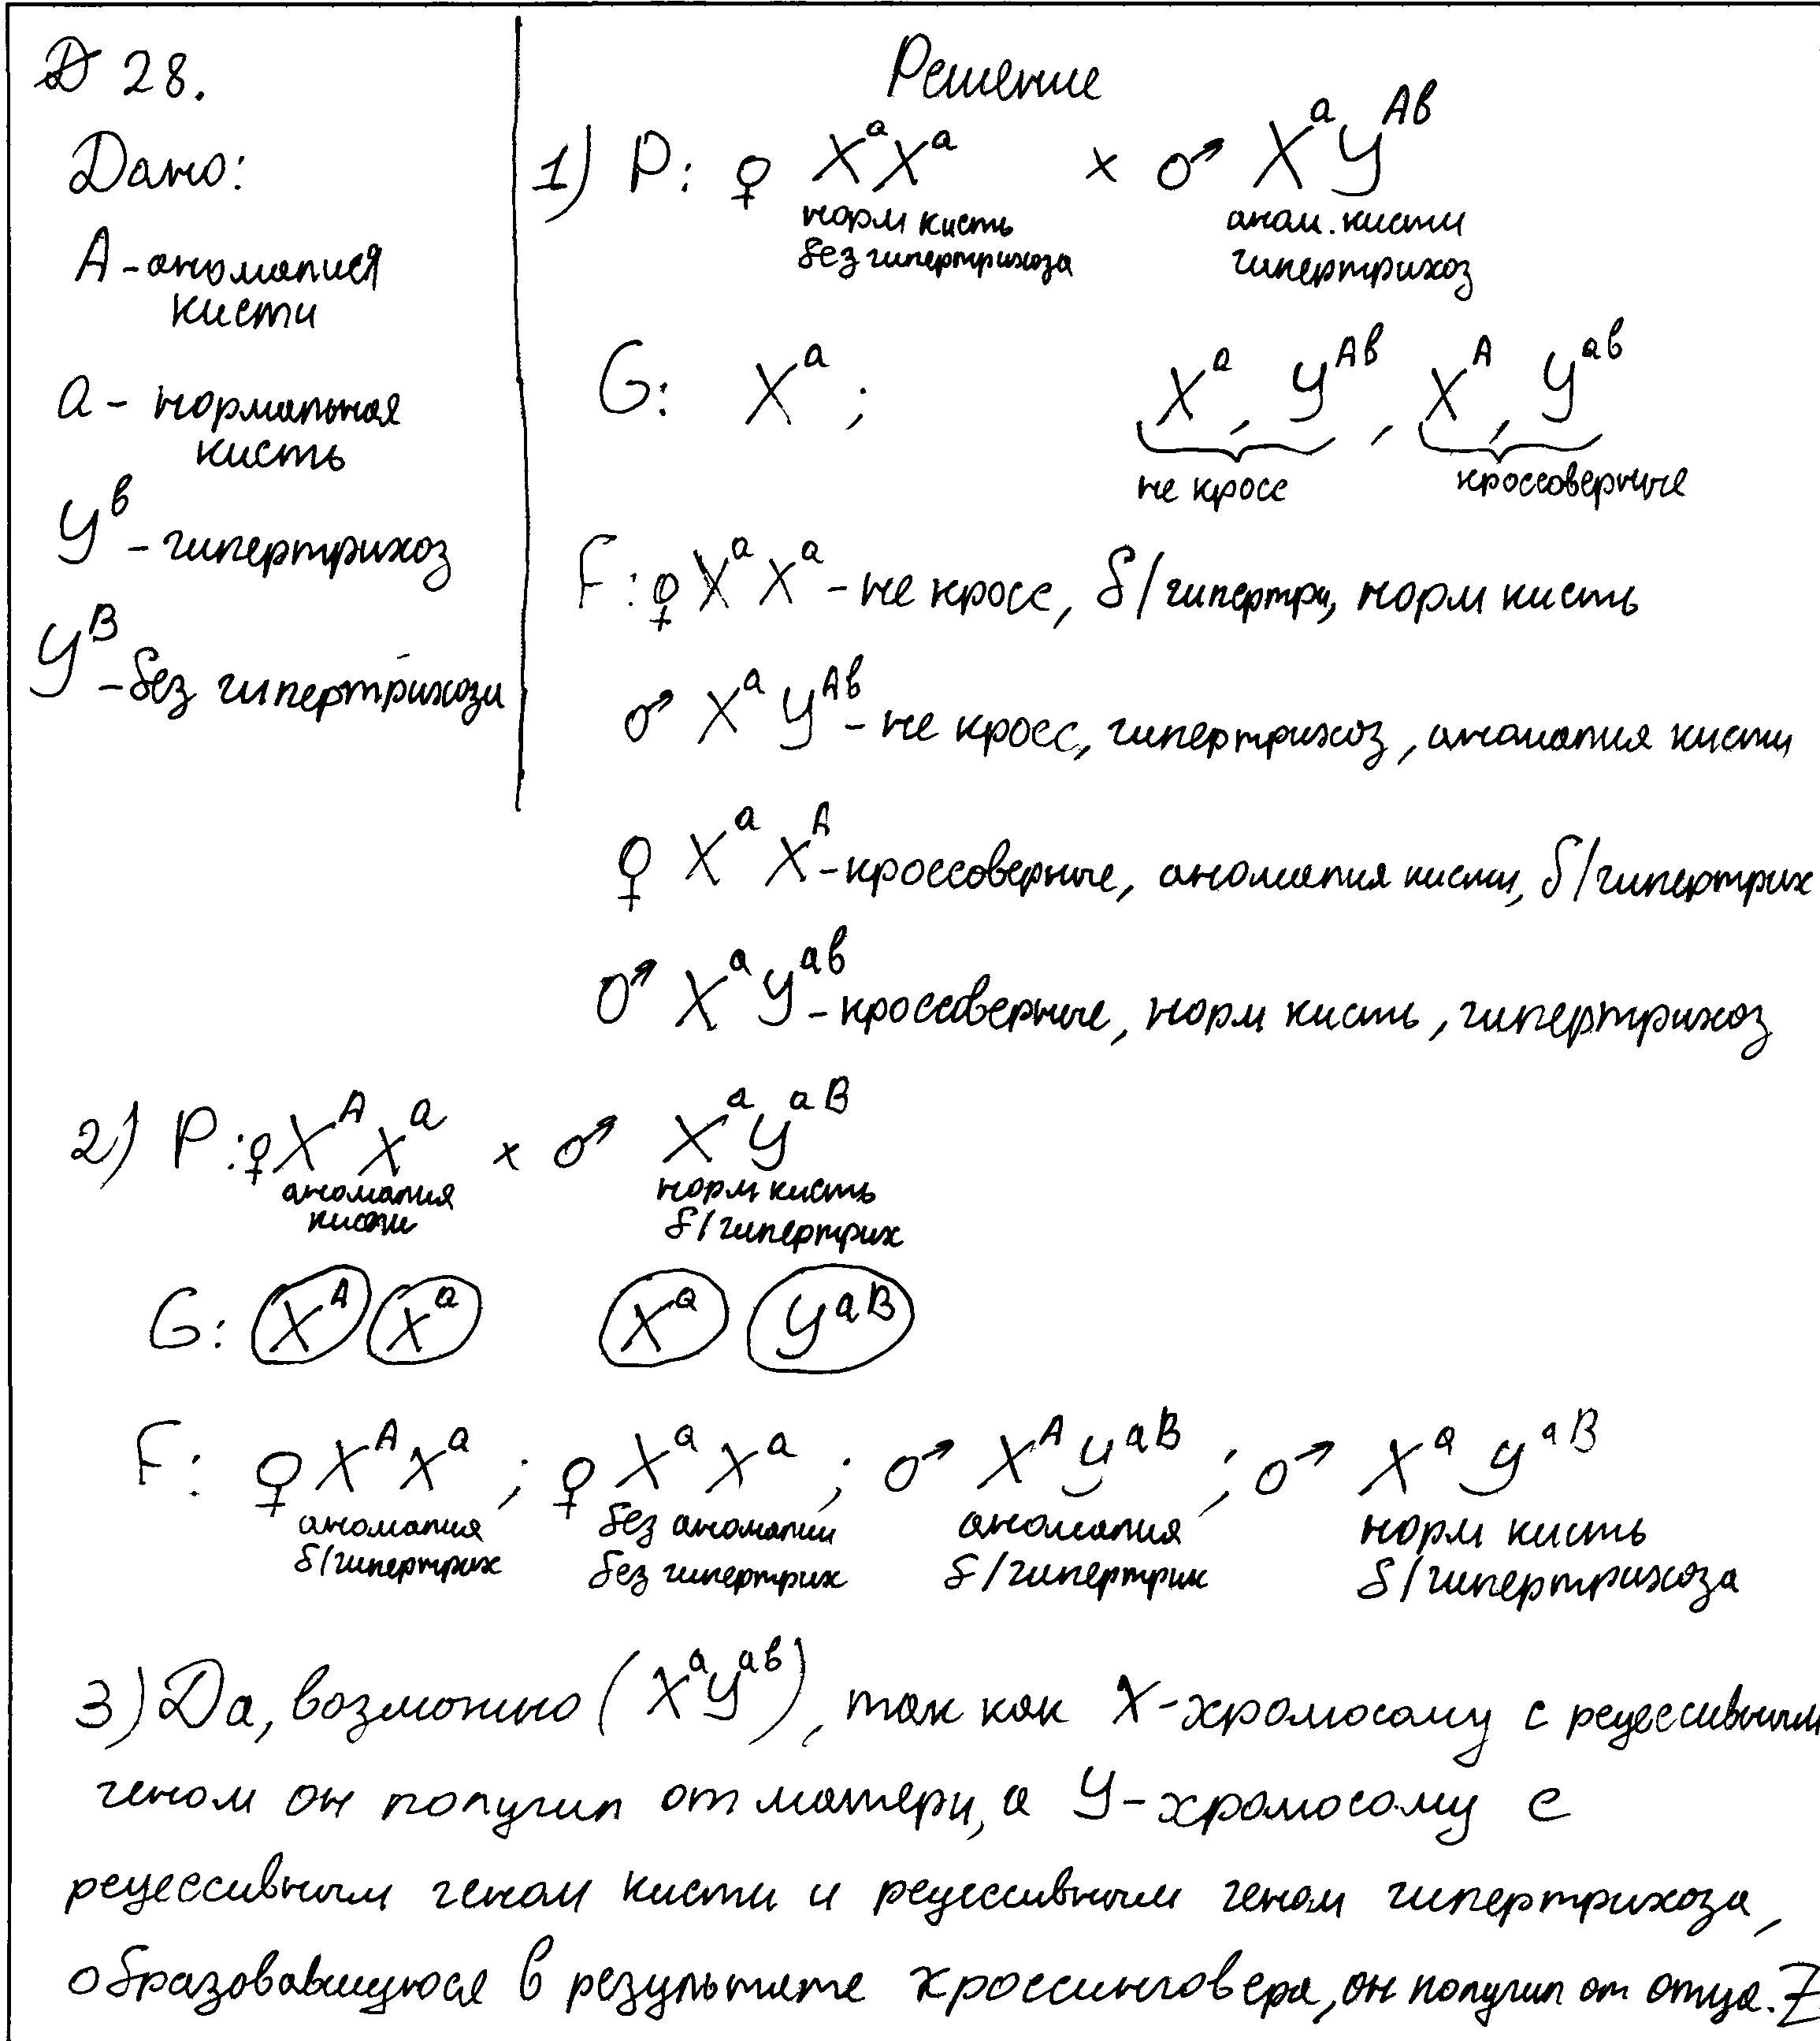 28.
Решение
Дано:
A - аномалия
кисти
a - нормальная
кисть
Y^b - гипертрихоз
Y^B - без гипертрихоза
1) P: ♀ X^a X^a × ♂ X^a Y^Ab
норм кисть аном. кисти
без гипертрихоза гипертрихоз
G: X^a ; X^a, Y^Ab, X^A, Y^ab
не кросс кроссоверные
F: ♀ X^a X^a - не кросс, б/гипертри, норм кисть
♂ X^a Y^Ab - не кросс, гипертрихоз, аномалия кисти
♀ X^a X^A - кроссоверные, аномалия кисти, б/гипертрих
♂ X^a Y^ab - кроссоверные, норм кисть, гипертрихоз
2) P: ♀ X^A X^a × ♂ X^a Y^aB
аномалия норм кисть
кисти б/гипертрих
G: X^A X^a X^a Y^aB
F: ♀ X^A X^a ; ♀ X^a X^a ; ♂ X^A Y^aB ; ♂ X^a Y^aB
аномалия без аномалии аномалия норм кисть
б/гипертрих без гипертрих б/гипертрих б/гипертрихоза
3) Да, возможно (X^a Y^ab), так как X-хромосому с рецессивным
геном он получил от матери, а Y-хромосому с
рецессивным геном кисти и рецессивным геном гипертрихоза,
образовавшуюся в результате кроссинговера, он получил от отца. Z